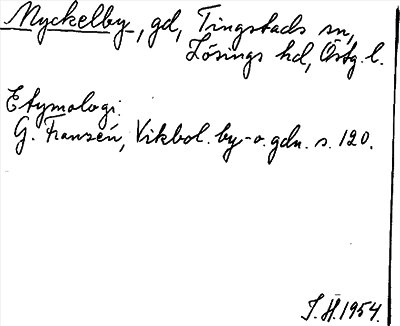 Myckelby, gd, Tingstads sn,
Lösings hd, Östg. l.
Etymologi:
G. Franzén, Vikbol. by- o. gdn. s. 120.
I. H. 1954.